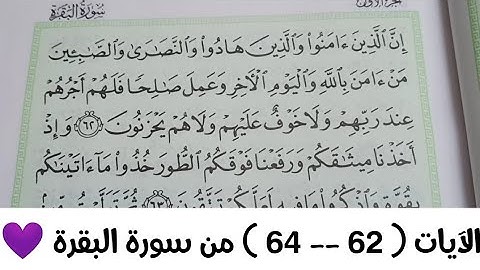 سورة البقرة
الجزء الأول
إِنَّ ٱلَّذِينَ ءَامَنُوا۟ وَٱلَّذِينَ هَادُوا۟ وَٱلنَّصَٰرَىٰ وَٱلصَّٰبِـِٔينَ
مَنْ ءَامَنَ بِٱللَّهِ وَٱلْيَوْمِ ٱلْءَاخِرِ وَعَمِلَ صَٰلِحًا فَلَهُمْ أَجْرُهُمْ
عِندَ رَبِّهِمْ وَلَا خَوْفٌ عَلَيْهِمْ وَلَا هُمْ يَحْزَنُونَ ٦٢ وَإِذْ
أَخَذْنَا مِيثَٰقَكُمْ وَرَفَعْنَا فَوْقَكُمُ ٱلطُّورَ خُذُوا۟ مَآ ءَاتَيْنَٰكُم
بِقُوَّةٍ وَٱذْكُرُوا۟ مَا فِيهِ لَعَلَّكُمْ تَتَّقُونَ ٦٣
الآيات ( 62 -- 64 ) من سورة البقرة 💜